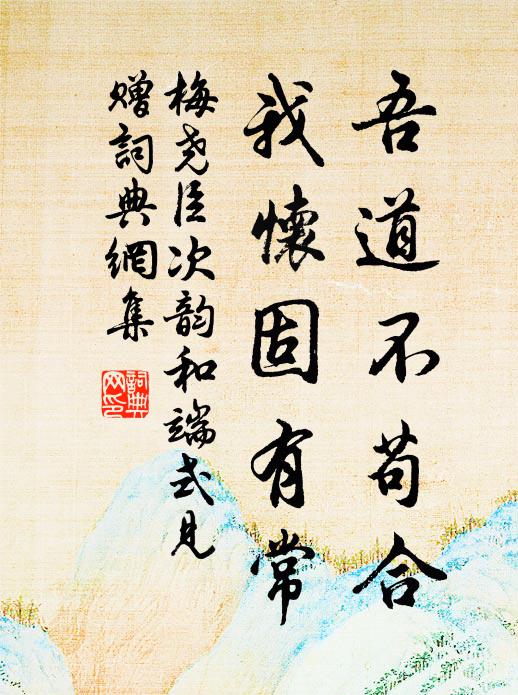 吾道不苟合
我懷固有常
梅堯臣次韵和端式見
贈詞典網集
詞典
网印